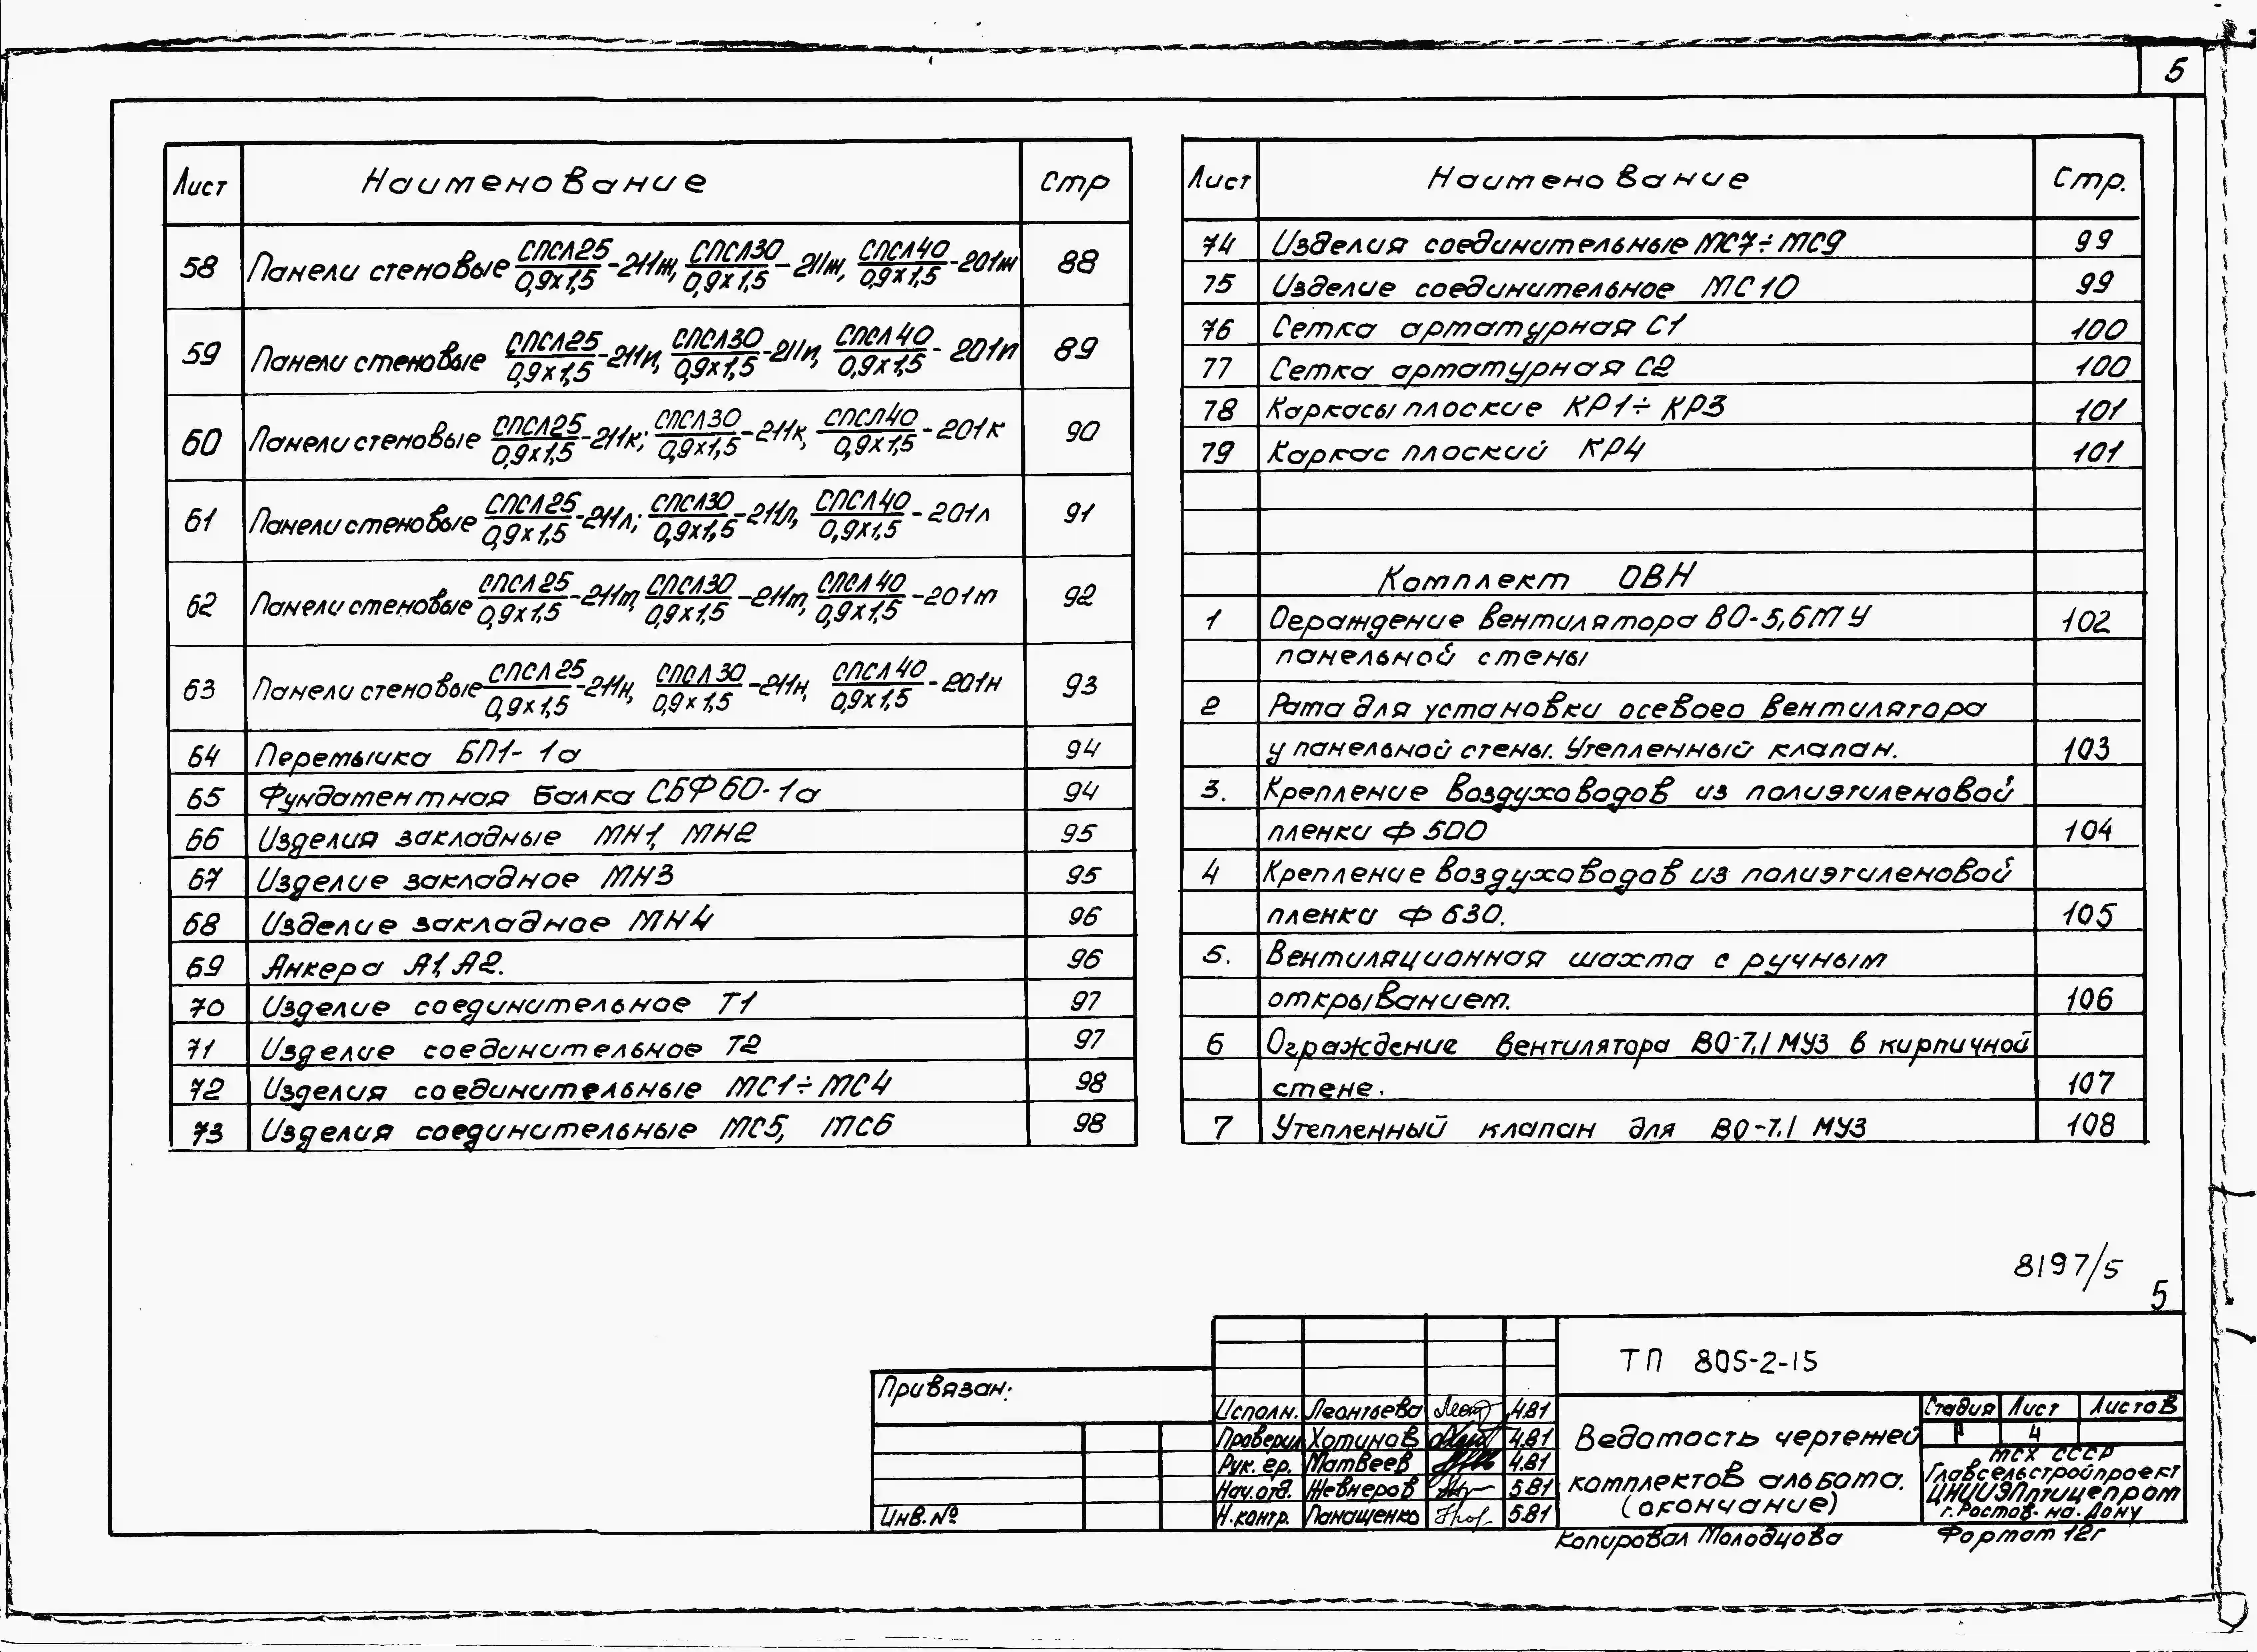 5
Лист Наименование стр
58 Панели стеновые СПСЛ25/0,9х1,5-211ж, СПСЛ30/0,9х1,5-211ж, СПСЛ40/0,9х1,5-201ж 88
59 Панели стеновые СПСЛ25/0,9х1,5-211и, СПСЛ30/0,9х1,5-211и, СПСЛ40/0,9х1,5-201и 89
60 Панели стеновые СПСЛ25/0,9х1,5-211к; СПСЛ30/0,9х1,5-211к, СПСЛ40/0,9х1,5-201к 90
61 Панели стеновые СПСЛ25/0,9х1,5-211л; СПСЛ30/0,9х1,5-211л, СПСЛ40/0,9х1,5-201л 91
62 Панели стеновые СПСЛ25/0,9х1,5-211м, СПСЛ30/0,9х1,5-211м, СПСЛ40/0,9х1,5-201м 92
63 Панели стеновые СПСЛ25/0,9х1,5-211н, СПСЛ30/0,9х1,5-211н, СПСЛ40/0,9х1,5-201н 93
64 Перемычка БП1-1а 94
65 Фундаментная балка СБФ60-1а 94
66 Изделия закладные МН1, МН2 95
67 Изделие закладное МН3 95
68 Изделие закладное МН4 96
69 Анкера А1, А2. 96
70 Изделие соединительное Т1 97
71 Изделие соединительное Т2 97
72 Изделия соединительные МС1÷МС4 98
73 Изделия соединительные МС5, МС6 98
Лист Наименование Стр.
74 Изделия соединительные МС7÷МС9 99
75 Изделие соединительное МС10 99
76 Сетка арматурная С1 100
77 Сетка арматурная С2 100
78 Каркасы плоские КР1÷КР3 101
79 Каркас плоский КР4 101
Комплект ОВН
1 Ограждение вентилятора ВО-5,6М У 102
панельной стены
2 Рама для установки осевого вентилятора
у панельной стены. Утепленный клапан. 103
3. Крепление воздуховодов из полиэтиленовой
пленки Ф 500 104
4 Крепление воздуховодов из полиэтиленовой
пленки Ф 630. 105
5. Вентиляционная шахта с ручным
открыванием. 106
6 Ограждение вентилятора ВО-7.1 МУЗ в кирпичной
стене. 107
7 Утепленный клапан для ВО-7.1 МУЗ 108
8197/5
5
ТП 805-2-15
Привязан:
Инв.№
Исполн. Леонтьева 4.81
Проверил Хотинов 4.81
Рук. гр. Матвеев 4.81
Нач.отд. Жевнеров 5.81
Н.контр. Панащенко 5.81
Ведомость чертежей
комплектов альбома.
(окончание)
Стадия Лист Листов
Р 4
МСХ СССР
Главсельстройпроект
ЦНИИЭПптицепром
г.Ростов-на-Дону
Копировал Молодцова Формат 12г